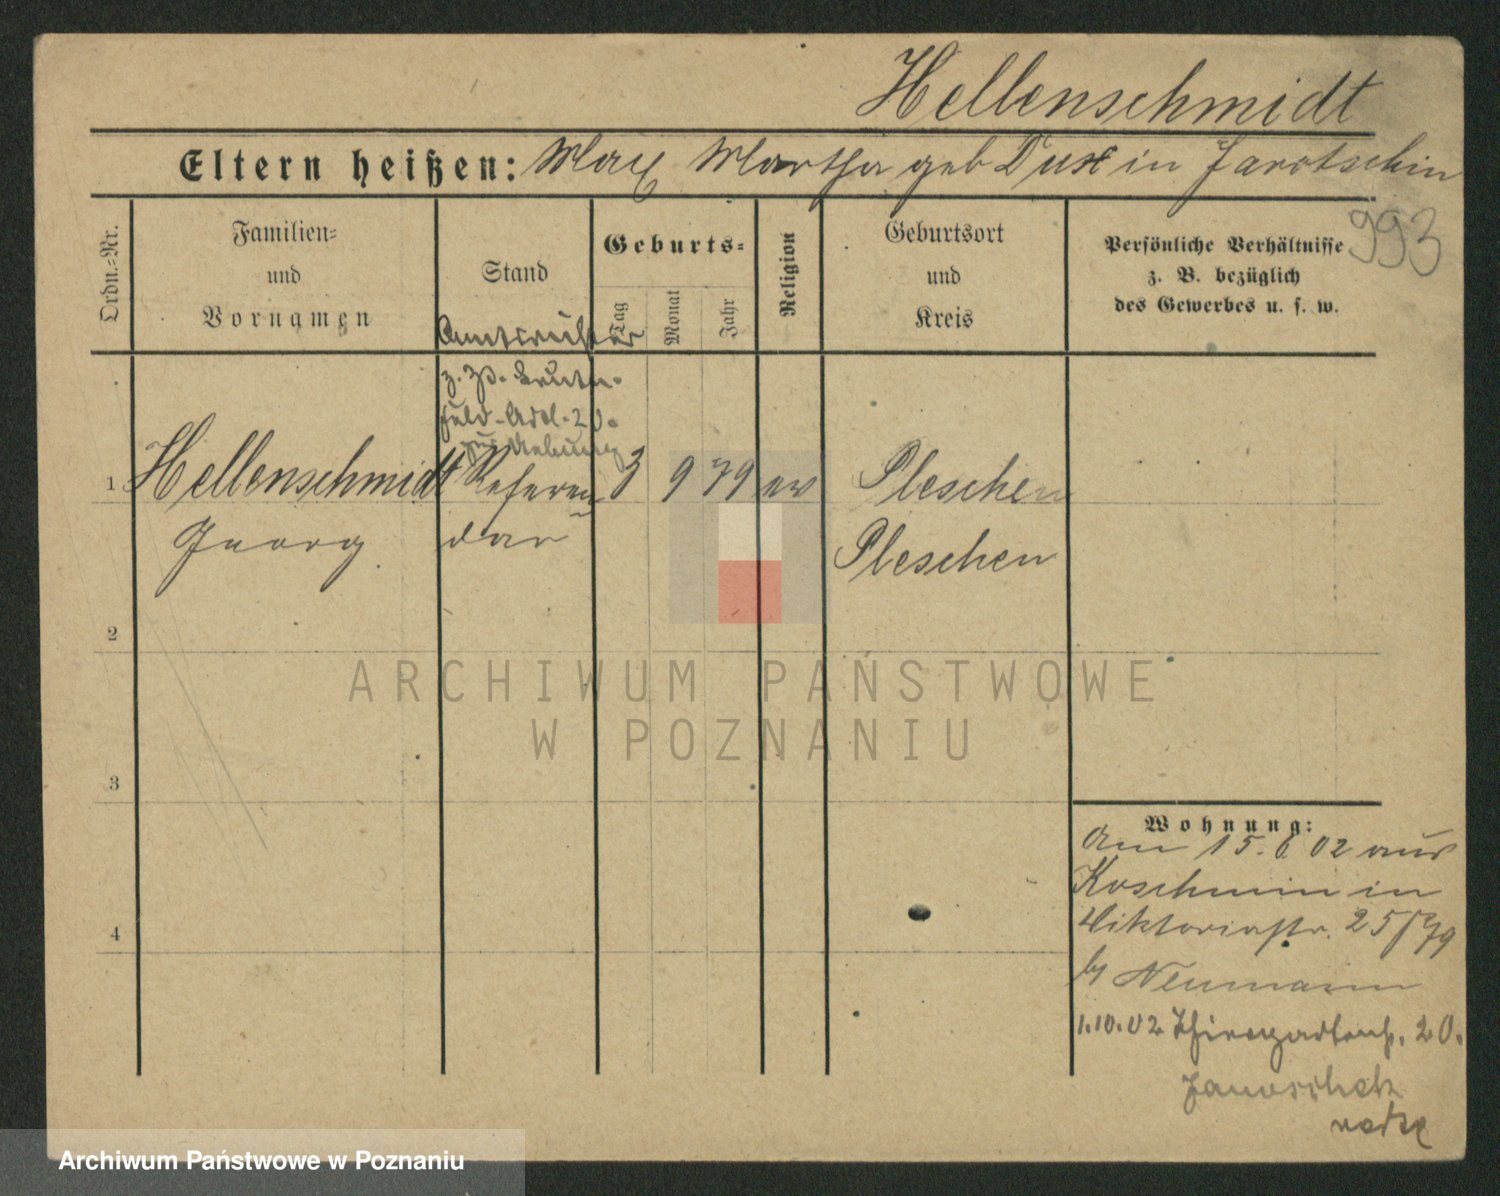 Hellenschmidt
Eltern heißen: Max Martha geb Dux in Jarotschin
993
Ordn.=Nr.
Familien=
und
Vornamen
Stand
Geburts=
Tag
Monat
Jahr
Religion
Geburtsort
und
Kreis
Persönliche Verhältnisse
z. B. bezüglich
des Gewerbes u. s. w.
Amtsrichter
z. Zt.
Feld-Artl. 20.
1 Hellenschmidt Referen 3 9 79 ev Pleschen
Georg dar Pleschen
2
3
4
Wohnung:
Am 15. 6 02 aus
Koschmin in
Viktoriastr. 25
by Neumann
1.10.02 Thiergartenstr. 20.
ARCHIWUM PAŃSTWOWE
W POZNANIU
Archiwum Państwowe w Poznaniu